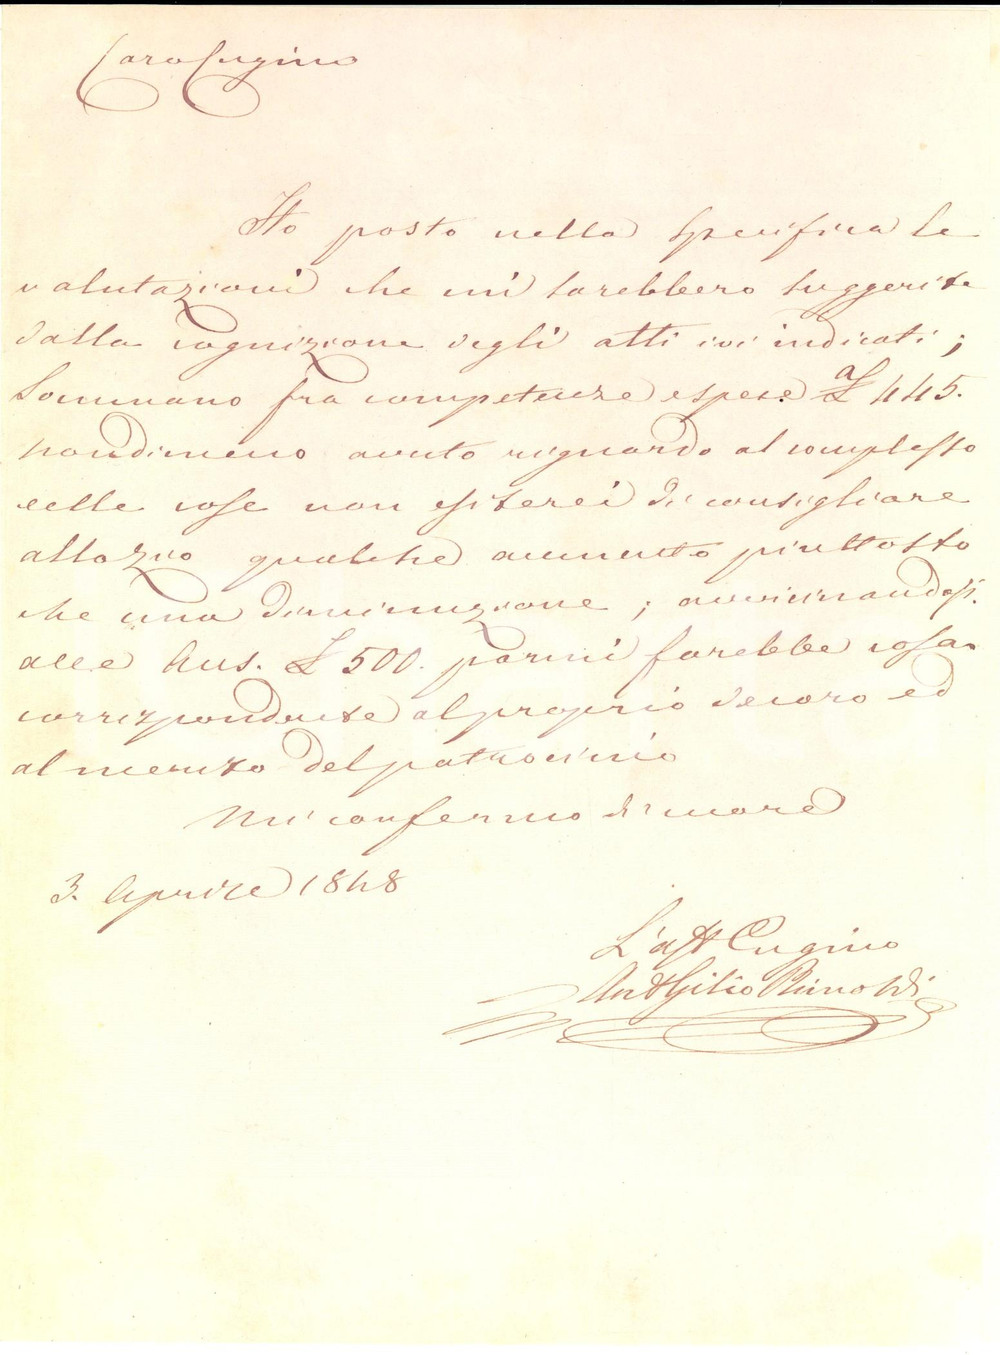 Caro Cugino
Ho posto nella specifica le
valutazioni che mi sarebbero suggerite
dalla cognizione degli atti ivi indicati;
Sommano fra competenze e spese £ 445.
nondimeno avuto riguardo al complesso
delle cose non esiterei di consigliare
allo Zio qualche aumento piuttosto
che una diminuzione; avvicinandosi
alle Aus. £ 500. parmi sarebbe cosa
corrispondente al proprio decoro ed
al merito del patrocinio
Mi confermo di cuore
3. Aprile 1848
L'aff Cugino
Rinoldi